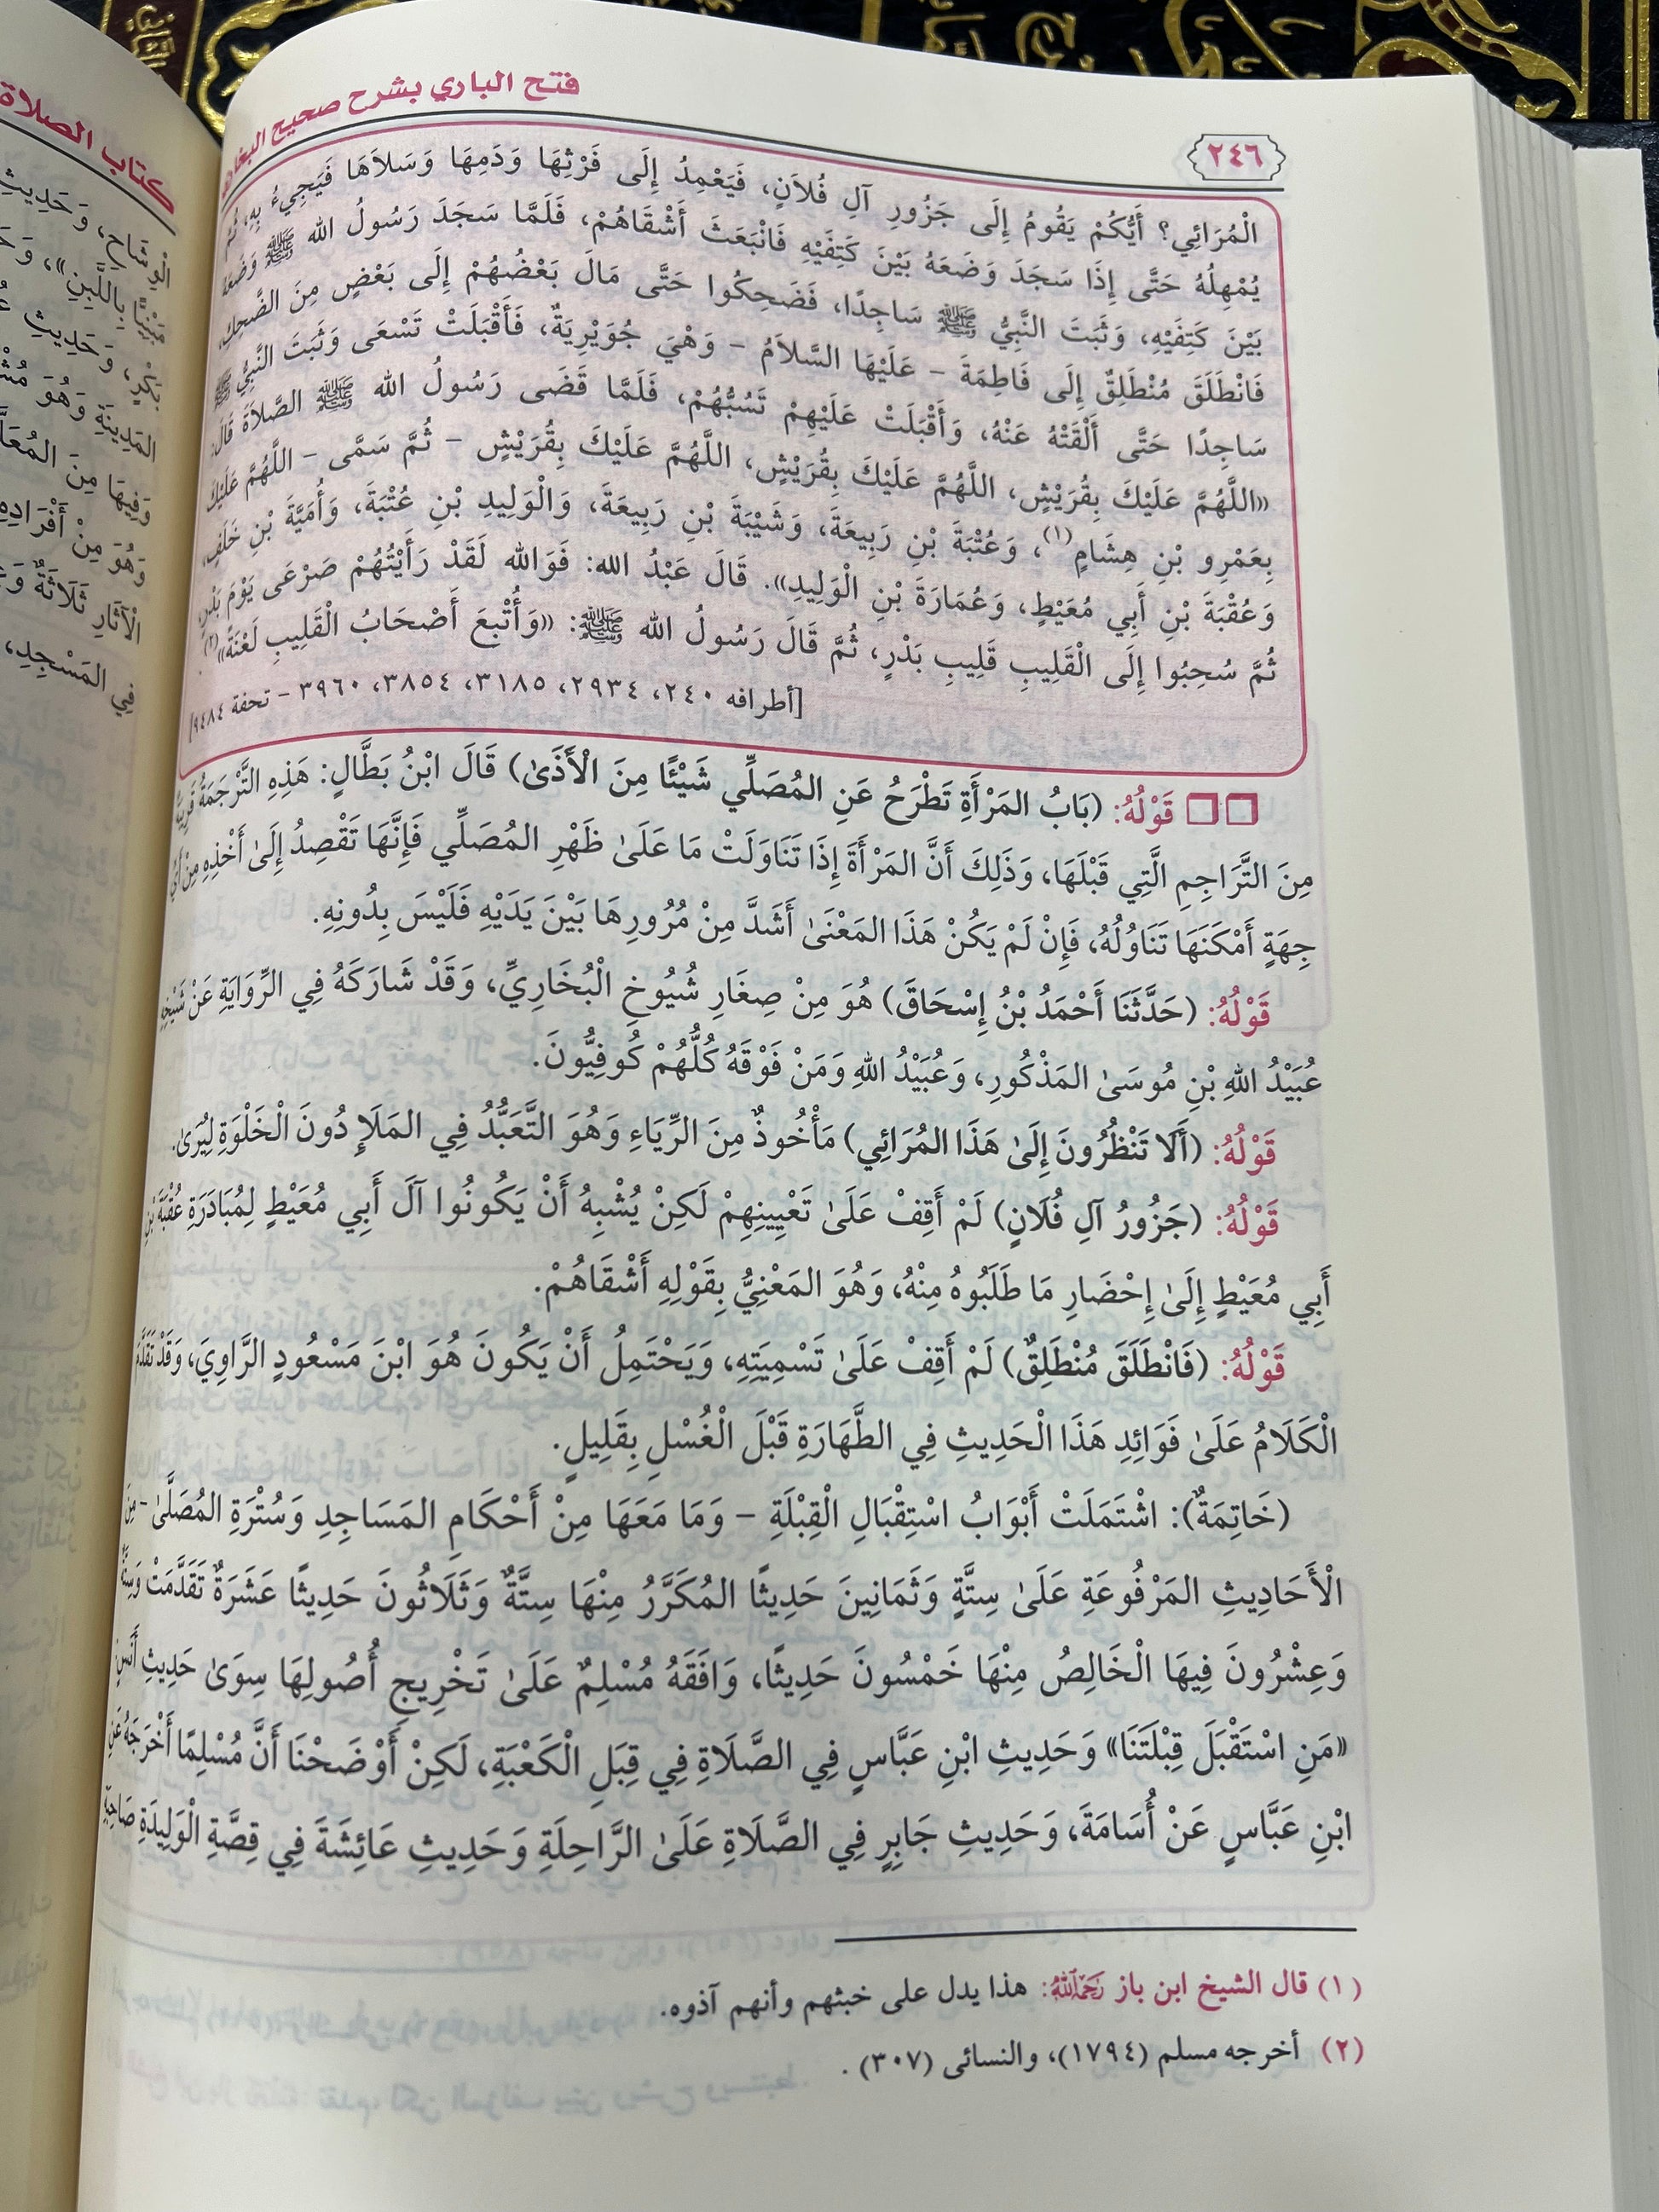 فتح الباري بشرح صحيح البخاري
٢٤٦
الْمُرَائِي؟ أَيُّكُمْ يَقُومُ إِلَى جَزُورِ آلِ فُلاَنٍ، فَيَعْمِدُ إِلَى فَرْثِهَا وَدَمِهَا وَسَلاَهَا فَيَجِيءُ بِهِ، ثُمَّ
يُمْهِلُهُ حَتَّى إِذَا سَجَدَ وَضَعَهُ بَيْنَ كَتِفَيْهِ فَانْبَعَثَ أَشْقَاهُمْ، فَلَمَّا سَجَدَ رَسُولُ الله ﷺ وَضَعَهُ
بَيْنَ كَتِفَيْهِ، وَثَبَتَ النَّبِيُّ ﷺ سَاجِدًا، فَضَحِكُوا حَتَّى مَالَ بَعْضُهُمْ إِلَى بَعْضٍ مِنَ الضَّحِكِ،
فَانْطَلَقَ مُنْطَلِقٌ إِلَى فَاطِمَةَ - عَلَيْهَا السَّلاَمُ - وَهْيَ جُوَيْرِيَةٌ، فَأَقْبَلَتْ تَسْعَى وَثَبَتَ النَّبِيُّ ﷺ
سَاجِدًا حَتَّى أَلْقَتْهُ عَنْهُ، وَأَقْبَلَتْ عَلَيْهِمْ تَسُبُّهُمْ، فَلَمَّا قَضَى رَسُولُ الله ﷺ الصَّلاَةَ قَالَ:
«اللَّهُمَّ عَلَيْكَ بِقُرَيْشٍ، اللَّهُمَّ عَلَيْكَ بِقُرَيْشٍ، اللَّهُمَّ عَلَيْكَ بِقُرَيْشٍ - ثُمَّ سَمَّى - اللَّهُمَّ عَلَيْكَ
بِعَمْرِو بْنِ هِشَامٍ(١)، وَعُتْبَةَ بْنِ رَبِيعَةَ، وَشَيْبَةَ بْنِ رَبِيعَةَ، وَالْوَلِيدِ بْنِ عُتْبَةَ، وَأُمَيَّةَ بْنِ خَلَفٍ،
وَعُقْبَةَ بْنِ أَبِي مُعَيْطٍ، وَعُمَارَةَ بْنِ الْوَلِيدِ». قَالَ عَبْدُ الله: فَوَالله لَقَدْ رَأَيْتُهُمْ صَرْعَى يَوْمَ بَدْرٍ،
ثُمَّ سُحِبُوا إِلَى الْقَلِيبِ قَلِيبِ بَدْرٍ، ثُمَّ قَالَ رَسُولُ الله ﷺ: «وَأُتْبِعَ أَصْحَابُ الْقَلِيبِ لَعْنَةً»(٢).
[أطرافه ٢٤٠، ٢٩٣٤، ٣١٨٥، ٣٨٥٤، ٣٩٦٠ - تحفة ٩٤٨٤]
قَوْلُهُ: (بَابُ المَرْأَةِ تَطْرَحُ عَنِ المُصَلِّي شَيْئًا مِنَ الْأَذَىٰ) قَالَ ابْنُ بَطَّالٍ: هَذِهِ التَّرْجَمَةُ قَرِيبَةٌ
مِنَ التَّرَاجِمِ الَّتِي قَبْلَهَا، وَذَلِكَ أَنَّ المَرْأَةَ إِذَا تَنَاوَلَتْ مَا عَلَىٰ ظَهْرِ المُصَلِّي فَإِنَّهَا تَقْصِدُ إِلَىٰ أَخْذِهِ مِنْ أَيِّ
جِهَةٍ أَمْكَنَهَا تَنَاوُلُهُ، فَإِنْ لَمْ يَكُنْ هَذَا المَعْنَىٰ أَشَدَّ مِنْ مُرُورِهَا بَيْنَ يَدَيْهِ فَلَيْسَ بِدُونِهِ.
قَوْلُهُ: (حَدَّثَنَا أَحْمَدُ بْنُ إِسْحَاقَ) هُوَ مِنْ صِغَارِ شُيُوخِ الْبُخَارِيِّ، وَقَدْ شَارَكَهُ فِي الرِّوَايَةِ عَنْ شَيْخِهِ
عُبَيْدُ اللهِ بْنِ مُوسَىٰ المَذْكُورِ، وَعُبَيْدُ اللهِ وَمَنْ فَوْقَهُ كُلُّهُمْ كُوفِيُّونَ.
قَوْلُهُ: (أَلَا تَنْظُرُونَ إِلَىٰ هَذَا المُرَائِي) مَأْخُوذٌ مِنَ الرِّيَاءِ وَهُوَ التَّعَبُّدُ فِي المَلَإِ دُونَ الْخَلْوَةِ لِيُرَىٰ.
قَوْلُهُ: (جَزُورُ آلِ فُلَانٍ) لَمْ أَقِفْ عَلَىٰ تَعْيِينِهِمْ لَكِنْ يُشْبِهُ أَنْ يَكُونُوا آلَ أَبِي مُعَيْطٍ لِمُبَادَرَةِ عُقْبَةَ بْنِ
أَبِي مُعَيْطٍ إِلَىٰ إِحْضَارِ مَا طَلَبُوهُ مِنْهُ، وَهُوَ المَعْنِيُّ بِقَوْلِهِ أَشْقَاهُمْ.
قَوْلُهُ: (فَانْطَلَقَ مُنْطَلِقٌ) لَمْ أَقِفْ عَلَىٰ تَسْمِيَتِهِ، وَيَحْتَمِلُ أَنْ يَكُونَ هُوَ ابْنَ مَسْعُودٍ الرَّاوِيَ، وَقَدْ تَقَدَّمَ
الْكَلَامُ عَلَىٰ فَوَائِدِ هَذَا الْحَدِيثِ فِي الطَّهَارَةِ قَبْلَ الْغُسْلِ بِقَلِيلٍ.
(خَاتِمَةٌ): اشْتَمَلَتْ أَبْوَابُ اسْتِقْبَالِ الْقِبْلَةِ - وَمَا مَعَهَا مِنْ أَحْكَامِ المَسَاجِدِ وَسُتْرَةِ المُصَلَّىٰ - مِنَ
الْأَحَادِيثِ المَرْفُوعَةِ عَلَىٰ سِتَّةٍ وَثَمَانِينَ حَدِيثًا المُكَرَّرُ مِنْهَا سِتَّةٌ وَثَلَاثُونَ حَدِيثًا عَشَرَةٌ تَقَدَّمَتْ وَسِتَّةٌ
وَعِشْرُونَ فِيهَا الْخَالِصُ مِنْهَا خَمْسُونَ حَدِيثًا، وَافَقَهُ مُسْلِمٌ عَلَىٰ تَخْرِيجِ أُصُولِهَا سِوَىٰ حَدِيثِ أَنَسٍ:
«مَنِ اسْتَقْبَلَ قِبْلَتَنَا» وَحَدِيثِ ابْنِ عَبَّاسٍ فِي الصَّلَاةِ فِي قِبَلِ الْكَعْبَةِ، لَكِنْ أَوْضَحْنَا أَنَّ مُسْلِمًا أَخْرَجَهُ عَنِ
ابْنِ عَبَّاسٍ عَنْ أُسَامَةَ، وَحَدِيثِ جَابِرٍ فِي الصَّلَاةِ عَلَىٰ الرَّاحِلَةِ وَحَدِيثِ عَائِشَةَ فِي قِصَّةِ الْوَلِيدَةِ صَاحِبَةِ
(١) قال الشيخ ابن باز رَحِمَهُ اللَّهُ: هذا يدل على خبثهم وأنهم آذوه.
(٢) أخرجه مسلم (١٧٩٤)، والنسائى (٣٠٧).
كتاب الصلاة
الْوِشَاحِ، وَحَدِيثِ
بِاللَّبِنِ»، وَ
وَحَدِيثِ
المَدِينَةِ وَهُوَ
وَفِيهَا مِنَ
وَهُوَ مِنْ أَفْرَادِهِ
الْآثَارِ ثَلَاثَةٌ
فِي المَسْجِدِ،